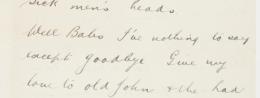 sick men's heads.
Well Babs I've nothing to say
except goodbye Give my
love to old John & the had